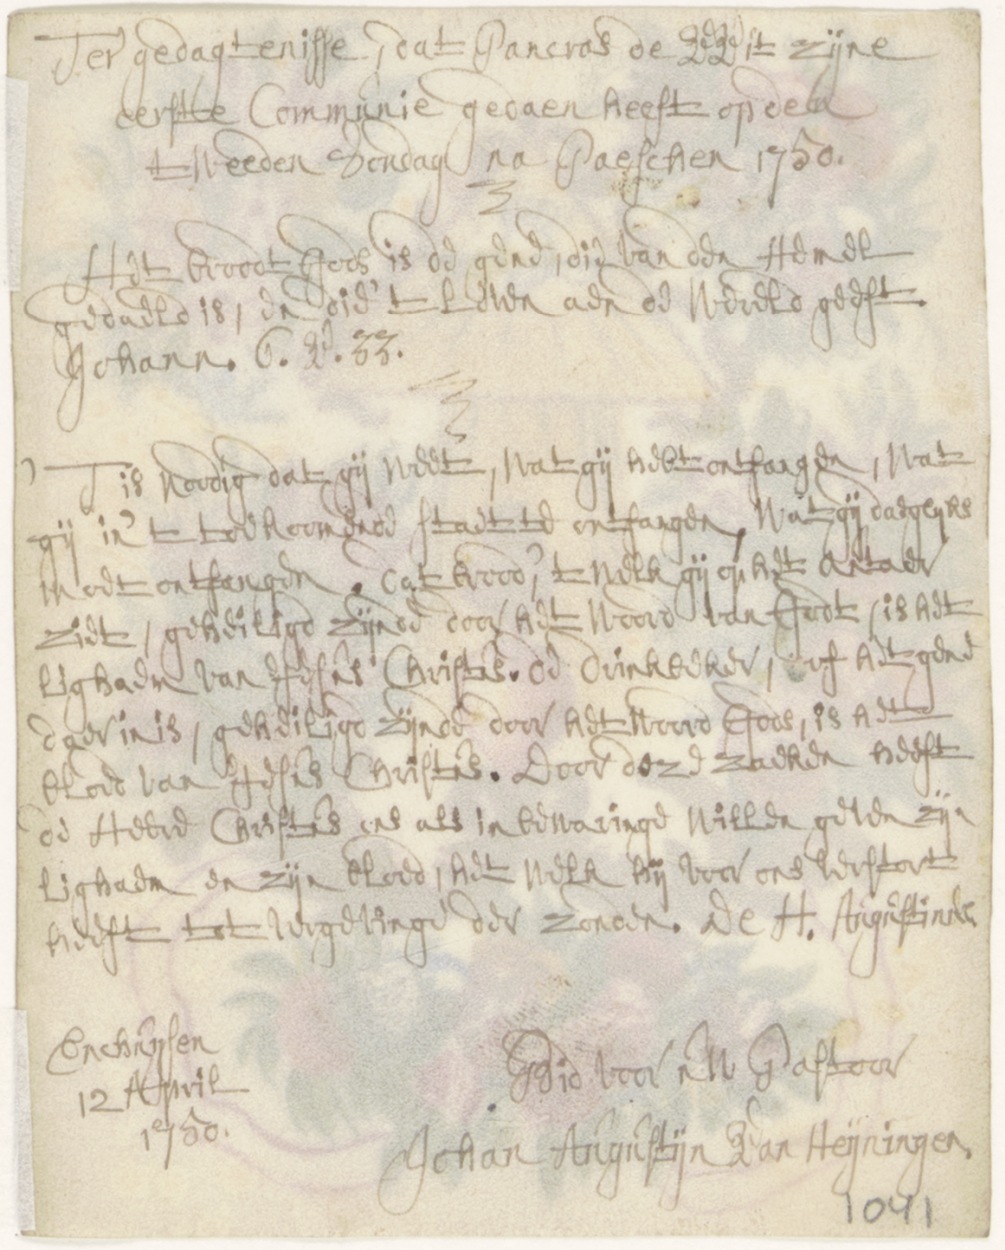 Ter gedagtenisse, dat Pancras de Wit zijne
eerste Communie gedaen heeft op den
tweeden Zondag na Paeschen 1750.
Het broodt Gods is de gene, die van den Hemel
gedaeld is, en die 't Leven aen de Wereld geeft.
Johann. 6. V. 33.
't Is noodig dat gij weet, wat gij hebt ontfangen, wat
gij in 't toekoomende staet te ontfangen, wat gij daegelyks
moet ontfangen. Dat brood, 't welk gij op het Autaer
ziet, geheiligd zijnde door het Woord van Godt, is het
Lighaem van Jesus Christus. De Drinkbeker, of het gene
daer in is, geheiligd zijnde door het Woord Gods, is het
bloed van Jesus Christus. Door deze zaeken heeft
de Heere Christus ons als in bewaringe willen geven zijn
Lighaem en zijn bloed, het welk hij voor ons verstort
heeft tot vergevinge der zonden. De H. Augustinus.
Enchuijsen
12 April
1750.
Bid voor uw Pastoor
Johan Augustijn Van Heijningen.
1041